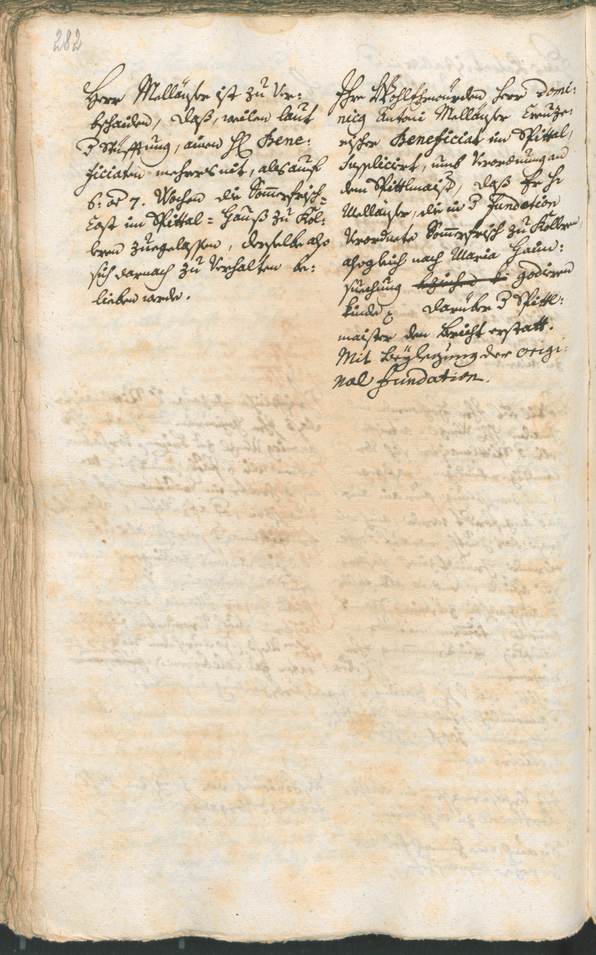 282
Herr Melläuser ist zu Ver:
bschaiden, daß, weilen laut
d Stüfftung, ainen H Bene:
ficiaten mehrers nit, als auf
6: od 7. Wochen die Sommerfrisch=
Cost im Spittal=Hauß zu Kol:
bern zuegelassen, derselbe also
sich darnach zu Verhalten be:
lieben werde.
Ihr Wohlehrwürden Herr Domi:
nicg Antoni Melläuser
Beneficiat im Spittal,
Supplicirt, umb Verordnung an
den Spittlmaist, daß Er H
Melläuser, die in d Fundation
Verordnete Sommerfrisch zu Kollern
alsogleich nach Maria Haimb:
suechung
darüber d Spittl:
maister den Bericht erstatt.
Mit Beylegung der origi:
nal fundation.